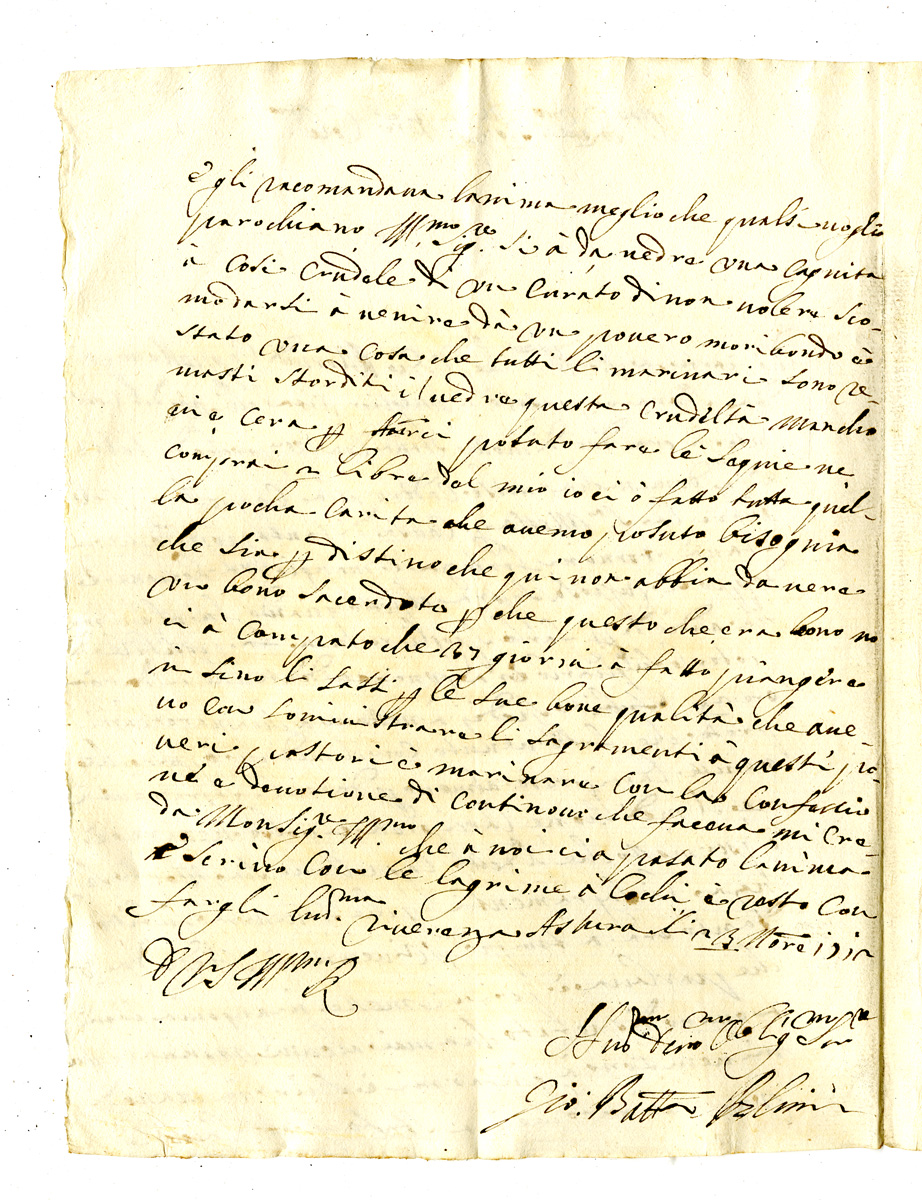 e gli racomandaua lanima meglio che qualsi uoglio
parochiano Illmo Sigre. Si à da uedre una cagnita
à cosi crudele di un curato di non uolere sco-
modarsi à uenire dà un pouero moribondo è
stato una cosa che tutti li marinari sono re-
masti storditi il uedre questa crudeltà mancho
cera p potuto fare le sequie ne
comprai 2 libre del mio io ci ò fatto tutta quel-
la pocha carita che auemo potuto bisognia
che sia p distino che qui non abbia da uere
un bono sacerdoto p che questo che era bono no
ci à campato che 37 giorni à fatto piangere
in sino li sassi p le sue bone qualità che aue-
uo con soministrare li sagramenti à questi po-
ueri pastori è marinare con la confessio
ne e deuotione di continouo che faceua mi cre-
da Monsigre. Illmo che à noi ci a pasato lanima
e scriuo con le lagrime à lochi è resto con
fargli humma riuerenza Astura li 23 1712
D VS Illma
Giò: Batta